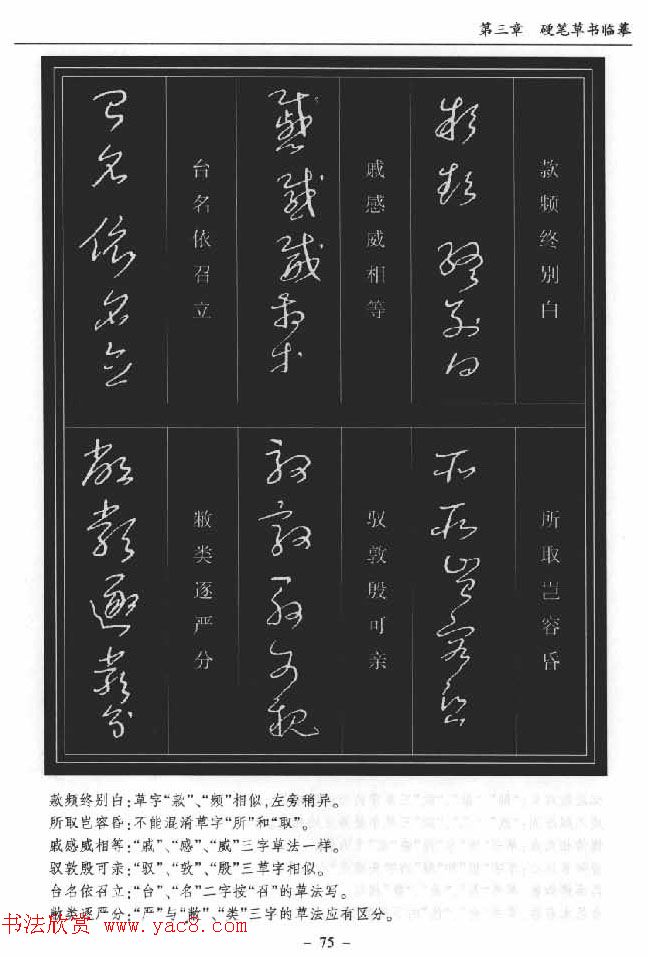 第三章 硬笔草书临摹
款频终别白
款频终别白
所取岂容昏
所取岂容昏
戚感威相等
戚感威相等
驭敦殷可亲
驭敦殷可亲
台名依召立
台名依召立
敝类逐严分
敝类逐严分
款频终别白:草字“款”、“频”相似,左旁稍异。
所取岂容昏:不能混淆草字“所”和“取”。
戚感威相等:“戚”、“感”、“威”三字草法一样。
驭敦殷可亲:“驭”、“敦”、“殷”三草字相似。
台名依召立:“台”、“名”二字按“召”的草法写。
敝类逐严分:“严”与“敝”、“类”三字的草法应有区分。
书法欣赏 www.yac8.com
- 75 -